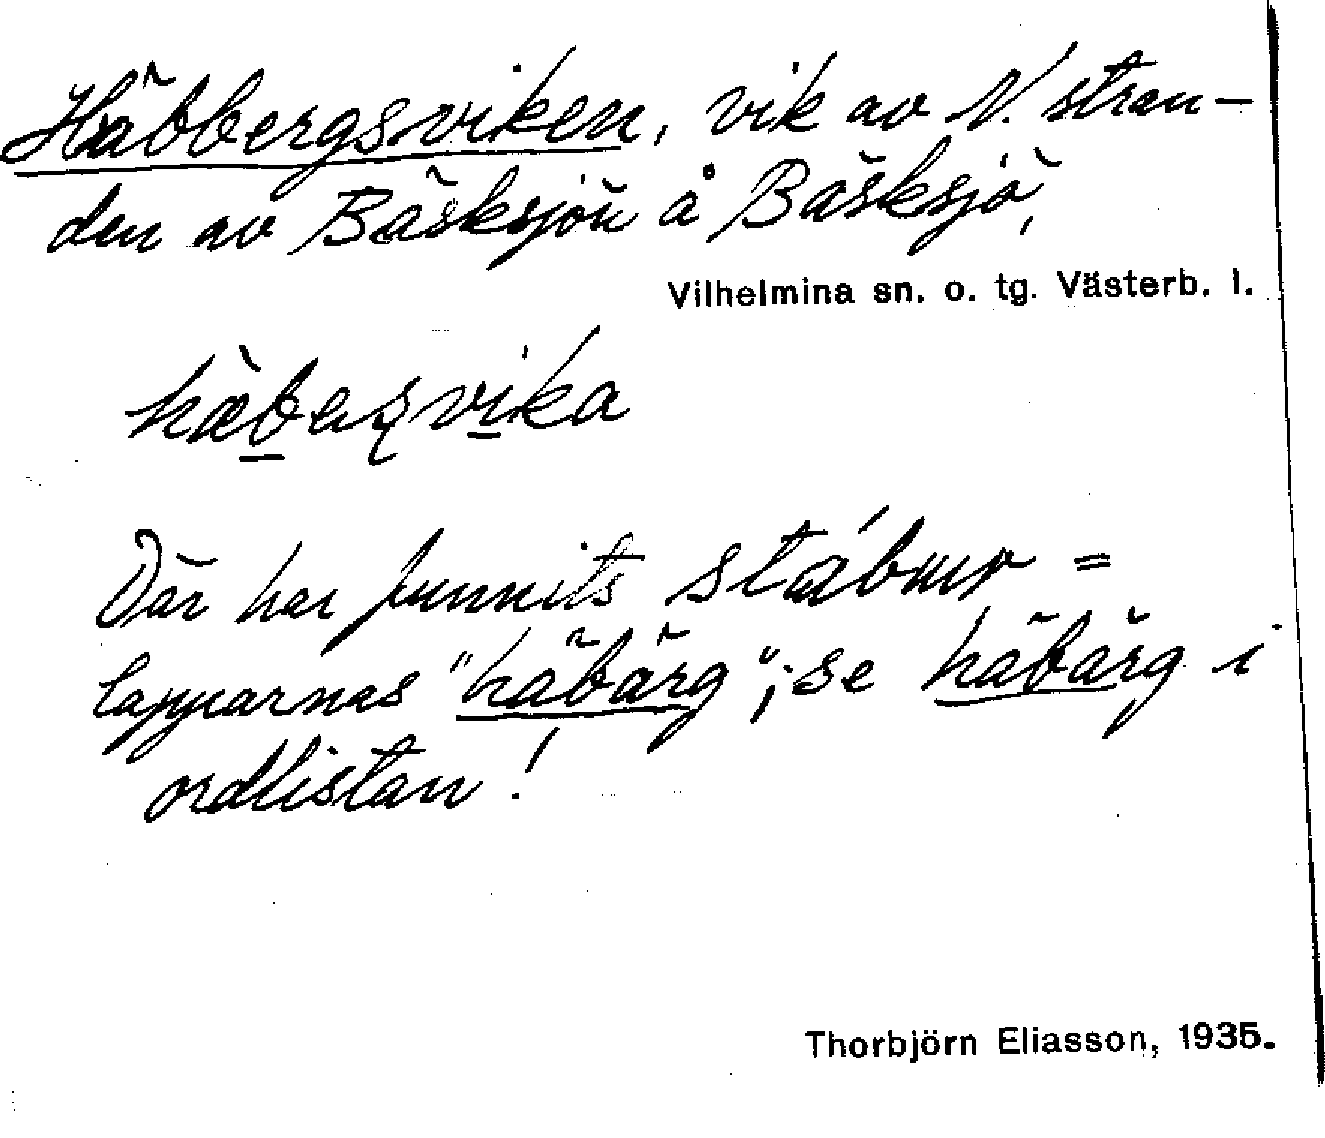 Häbbergsviken, vik av N. stran-
den av Bäsksjön å Bäsksjö,
Vilhelmina sn. o. tg. Västerb. l.
Där har funnits stábur =
lapparnas "häbärg"; se häbärg i
ordlistan!
Thorbjörn Eliasson, 1935.